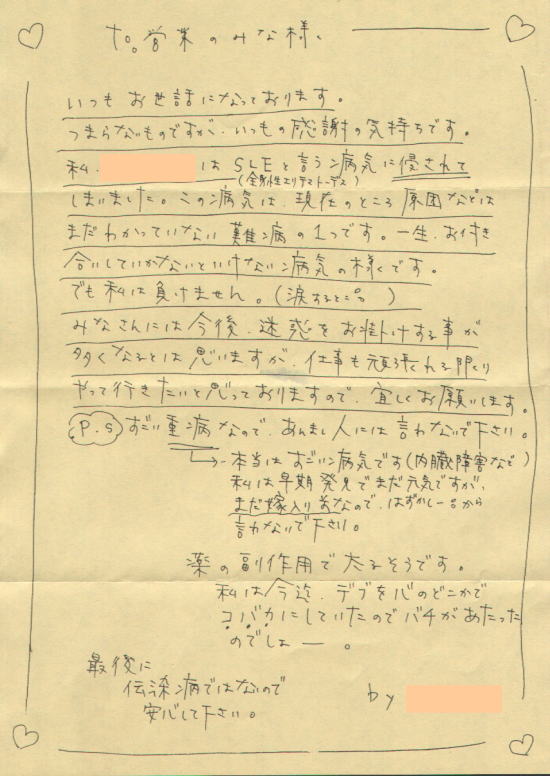 to。営業のみな様、
いつもお世話になっております。
つまらないものですが、いつもの感謝の気持ちです。
私、 は SLEと言う病気に侵されて
(全身性エリテマトーデス)
しまいました。この病気は、現在のところ原因などは
まだわかっていない難病の1つです。一生、お付き
合いしていかないといけない病気の様です。
でも私は負けません。(涙するところ。)
みなさんには今後、迷惑をお掛けする事が
多くなるとは思いますが、仕事も頑張れる限り
やって行きたいと思っておりますので、宜しくお願いします。
P.S ずごい重病なので、あんまし人には言わないで下さい。
→本当はすごい病気です(内臓障害など)
私は早期発見でまだ元気ですが、
まだ嫁入り前なので、はずかしー。から
言わないで下さい。
薬の副作用で太るそうです。
私は今迄、デブを心のどこかで
コバカにしていたのでバチがあたった
のでしょー。
最後に
伝染病ではないので
安心して下さい。
by